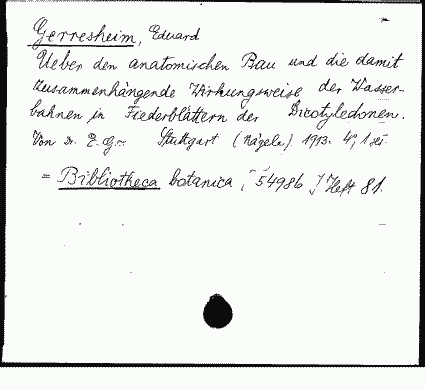 Gerresheim, Eduard
Ueber den anatomischen Bau und die damit
zusammenhängende Wirkungsweise der Wasser-
bahnen in Fiederblättern der Dicotyledonen.
Von Dr. E. Gr. Stuttgart (Nägele) 1913. 4°,
= Bibliotheca botanica, [54986] Heft 81.